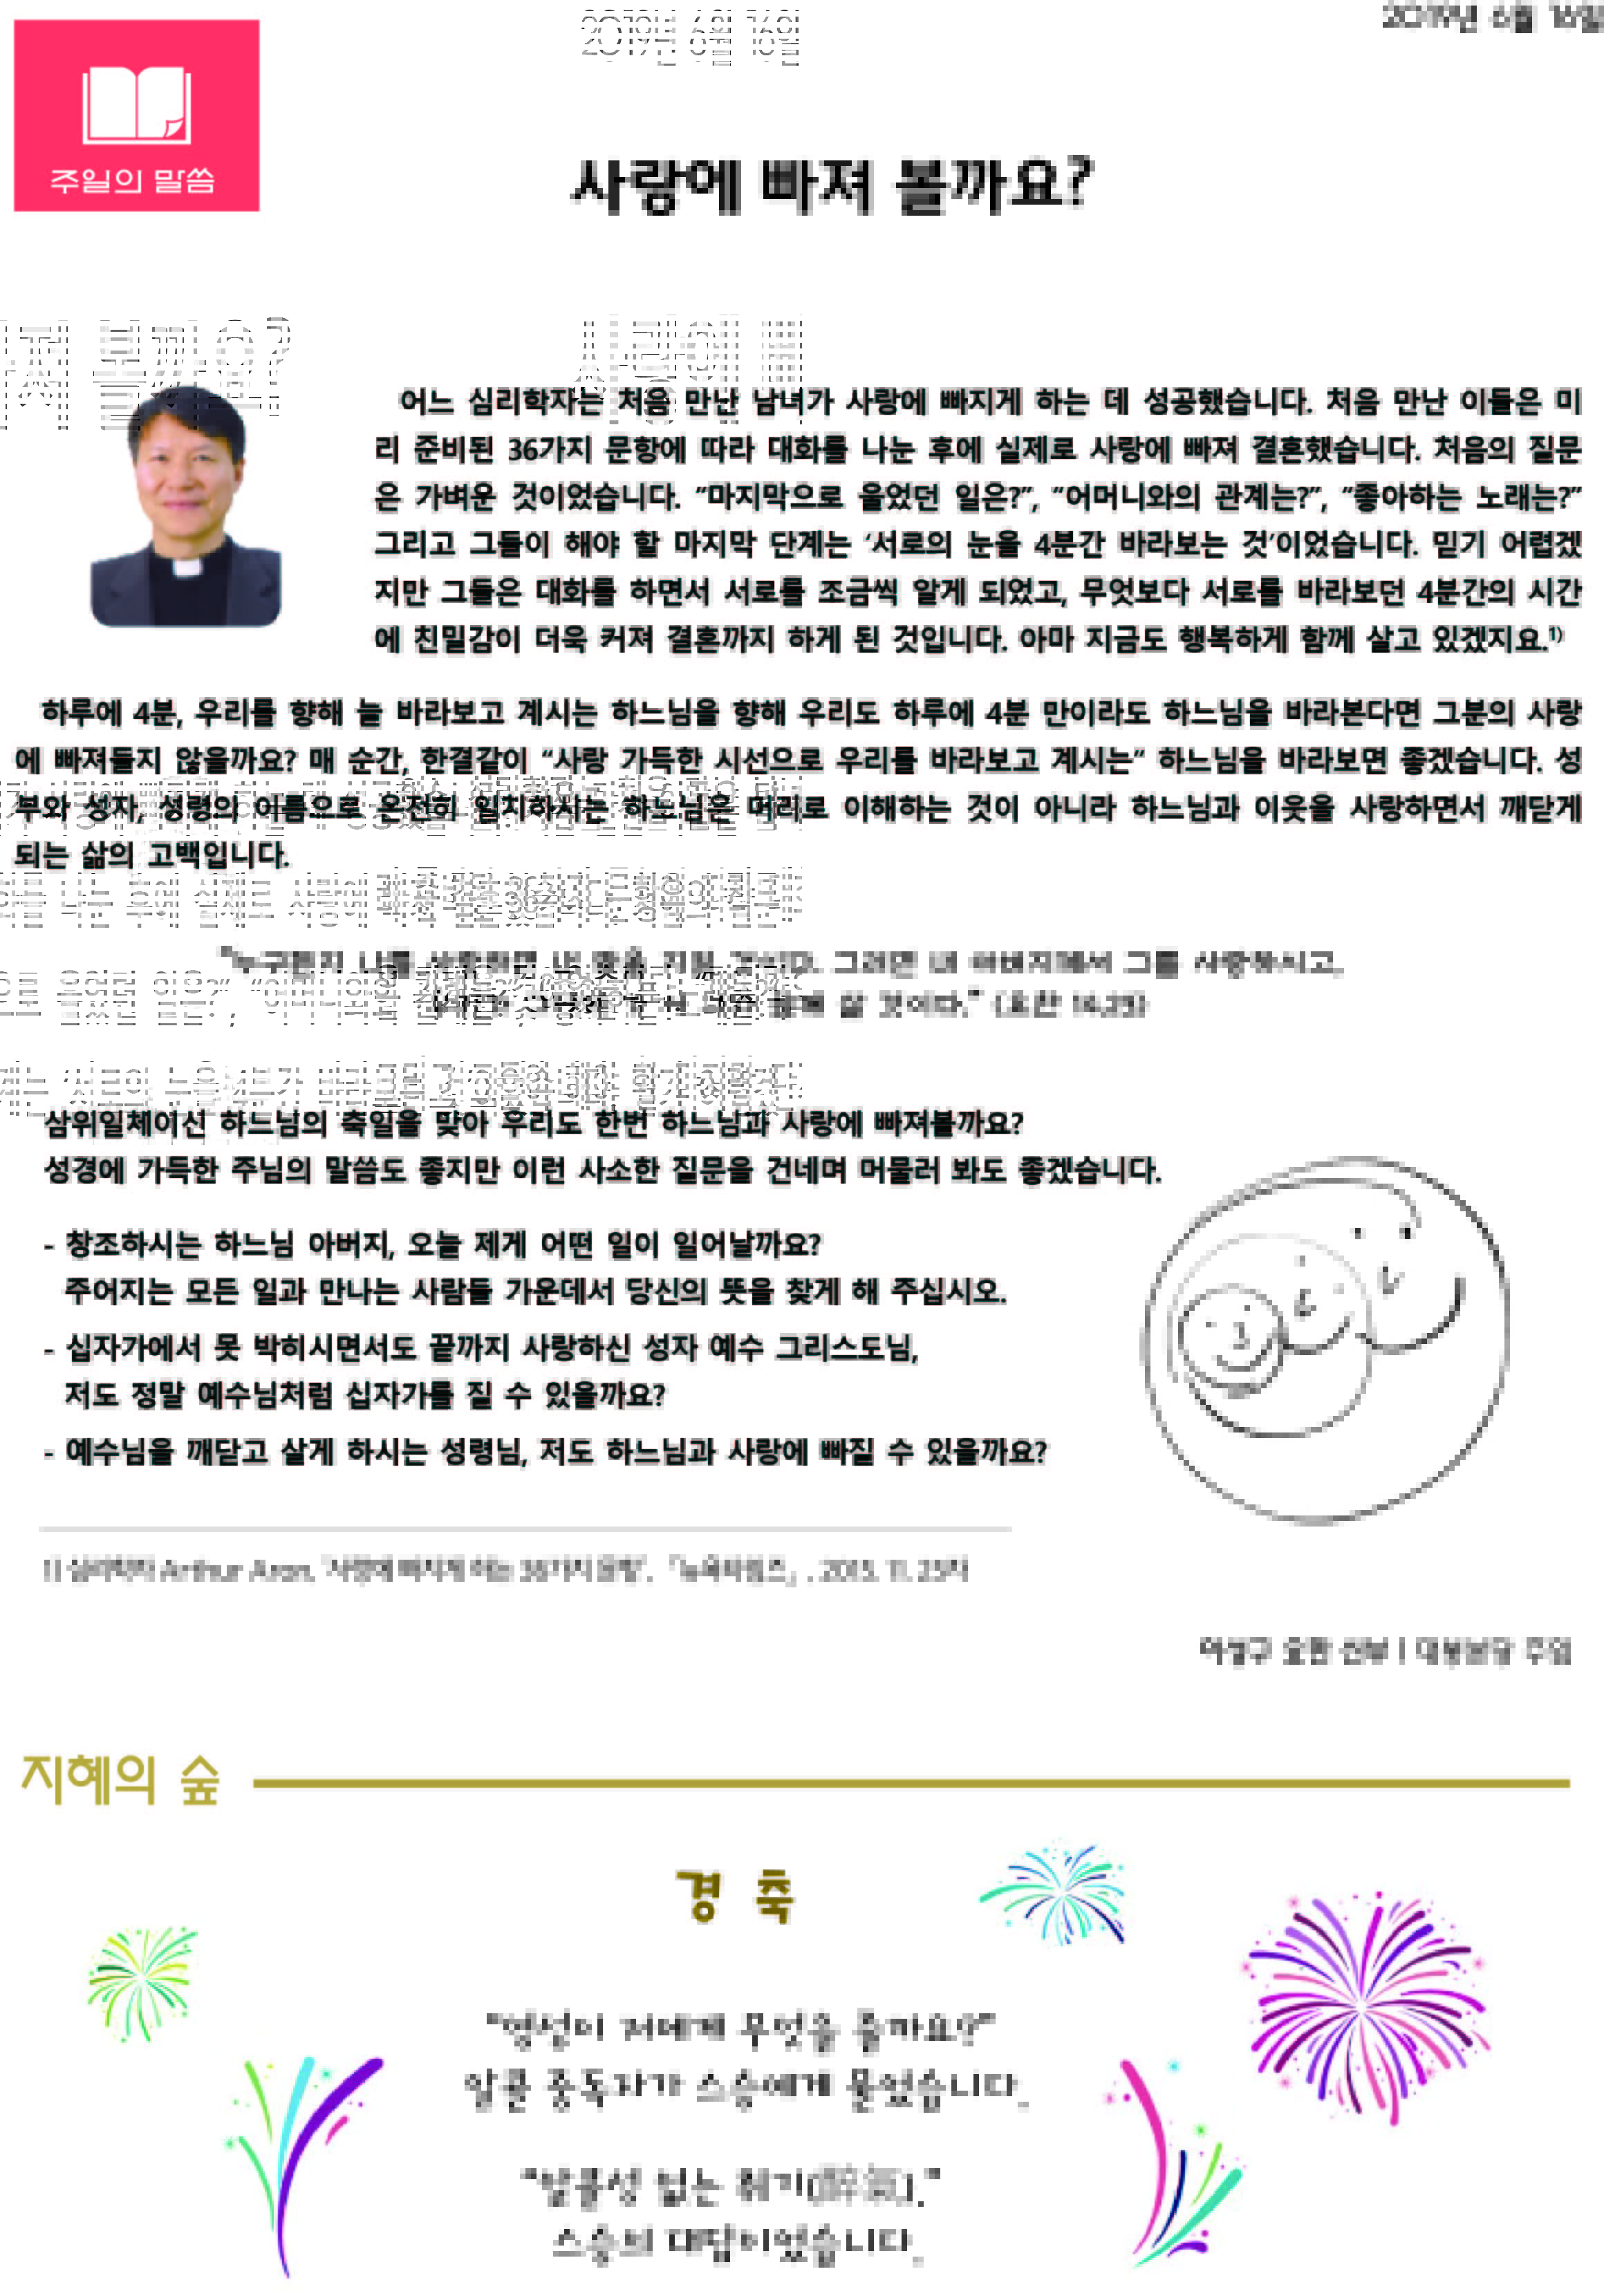 2019년 6월 16일
주일의 말씀
사랑에 빠져 볼까요?
어느 심리학자는 처음 만난 남녀가 사랑에 빠지게 하는 데 성공했습니다. 처음 만난 이들은 미
리 준비된 36가지 문항에 따라 대화를 나눈 후에 실제로 사랑에 빠져 결혼했습니다. 처음의 질문
은 가벼운 것이었습니다. “마지막으로 울었던 일은?”, “어머니와의 관계는?”, “좋아하는 노래는?”
그리고 그들이 해야 할 마지막 단계는 ‘서로의 눈을 4분간 바라보는 것’이었습니다. 믿기 어렵겠
지만 그들은 대화를 하면서 서로를 조금씩 알게 되었고, 무엇보다 서로를 바라보던 4분간의 시간
에 친밀감이 더욱 커져 결혼까지 하게 된 것입니다. 아마 지금도 행복하게 함께 살고 있겠지요.1)
하루에 4분, 우리를 향해 늘 바라보고 계시는 하느님을 향해 우리도 하루에 4분 만이라도 하느님을 바라본다면 그분의 사랑
에 빠져들지 않을까요? 매 순간, 한결같이 “사랑 가득한 시선으로 우리를 바라보고 계시는” 하느님을 바라보면 좋겠습니다. 성
부와 성자, 성령의 이름으로 온전히 일치하시는 하느님은 머리로 이해하는 것이 아니라 하느님과 이웃을 사랑하면서 깨닫게
되는 삶의 고백입니다.
“누구든지 나를 사랑하면 내 말을 지킬 것이다. 그러면 내 아버지께서 그를 사랑하시고,
함께 살 것이다.” (요한 14,23)
삼위일체이신 하느님의 축일을 맞아 우리도 한번 하느님과 사랑에 빠져볼까요?
성경에 가득한 주님의 말씀도 좋지만 이런 사소한 질문을 건네며 머물러 봐도 좋겠습니다.
- 창조하시는 하느님 아버지, 오늘 제게 어떤 일이 일어날까요?
주어지는 모든 일과 만나는 사람들 가운데서 당신의 뜻을 찾게 해 주십시오.
- 십자가에서 못 박히시면서도 끝까지 사랑하신 성자 예수 그리스도님,
저도 정말 예수님처럼 십자가를 질 수 있을까요?
- 예수님을 깨닫고 살게 하시는 성령님, 저도 하느님과 사랑에 빠질 수 있을까요?
1) 심리학자 Arthur Aron, ‘사랑에 빠지게 하는 36가지 문항’, 「뉴욕타임즈」, 2015. 11. 25자
요한 신부 | 주임
지혜의 숲
경 축
“영성이 저에게 무엇을 줄까요?”
알콜 중독자가 스승에게 물었습니다.
“알콜성 없는 취기(醉氣).”
스승의 대답이었습니다.